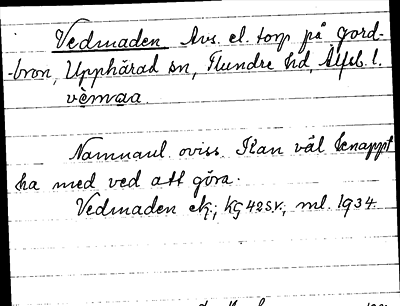 Vedmaden Avs. el. torp på Jord-
-bron, Upphärad sn, Flundre hd, Älfsb. l.
vèmwaa.
Namnanl. oviss. Kan väl knappt
ha med ved att göra.
Vedmaden ek.; KG 42 SV, ml. 1934